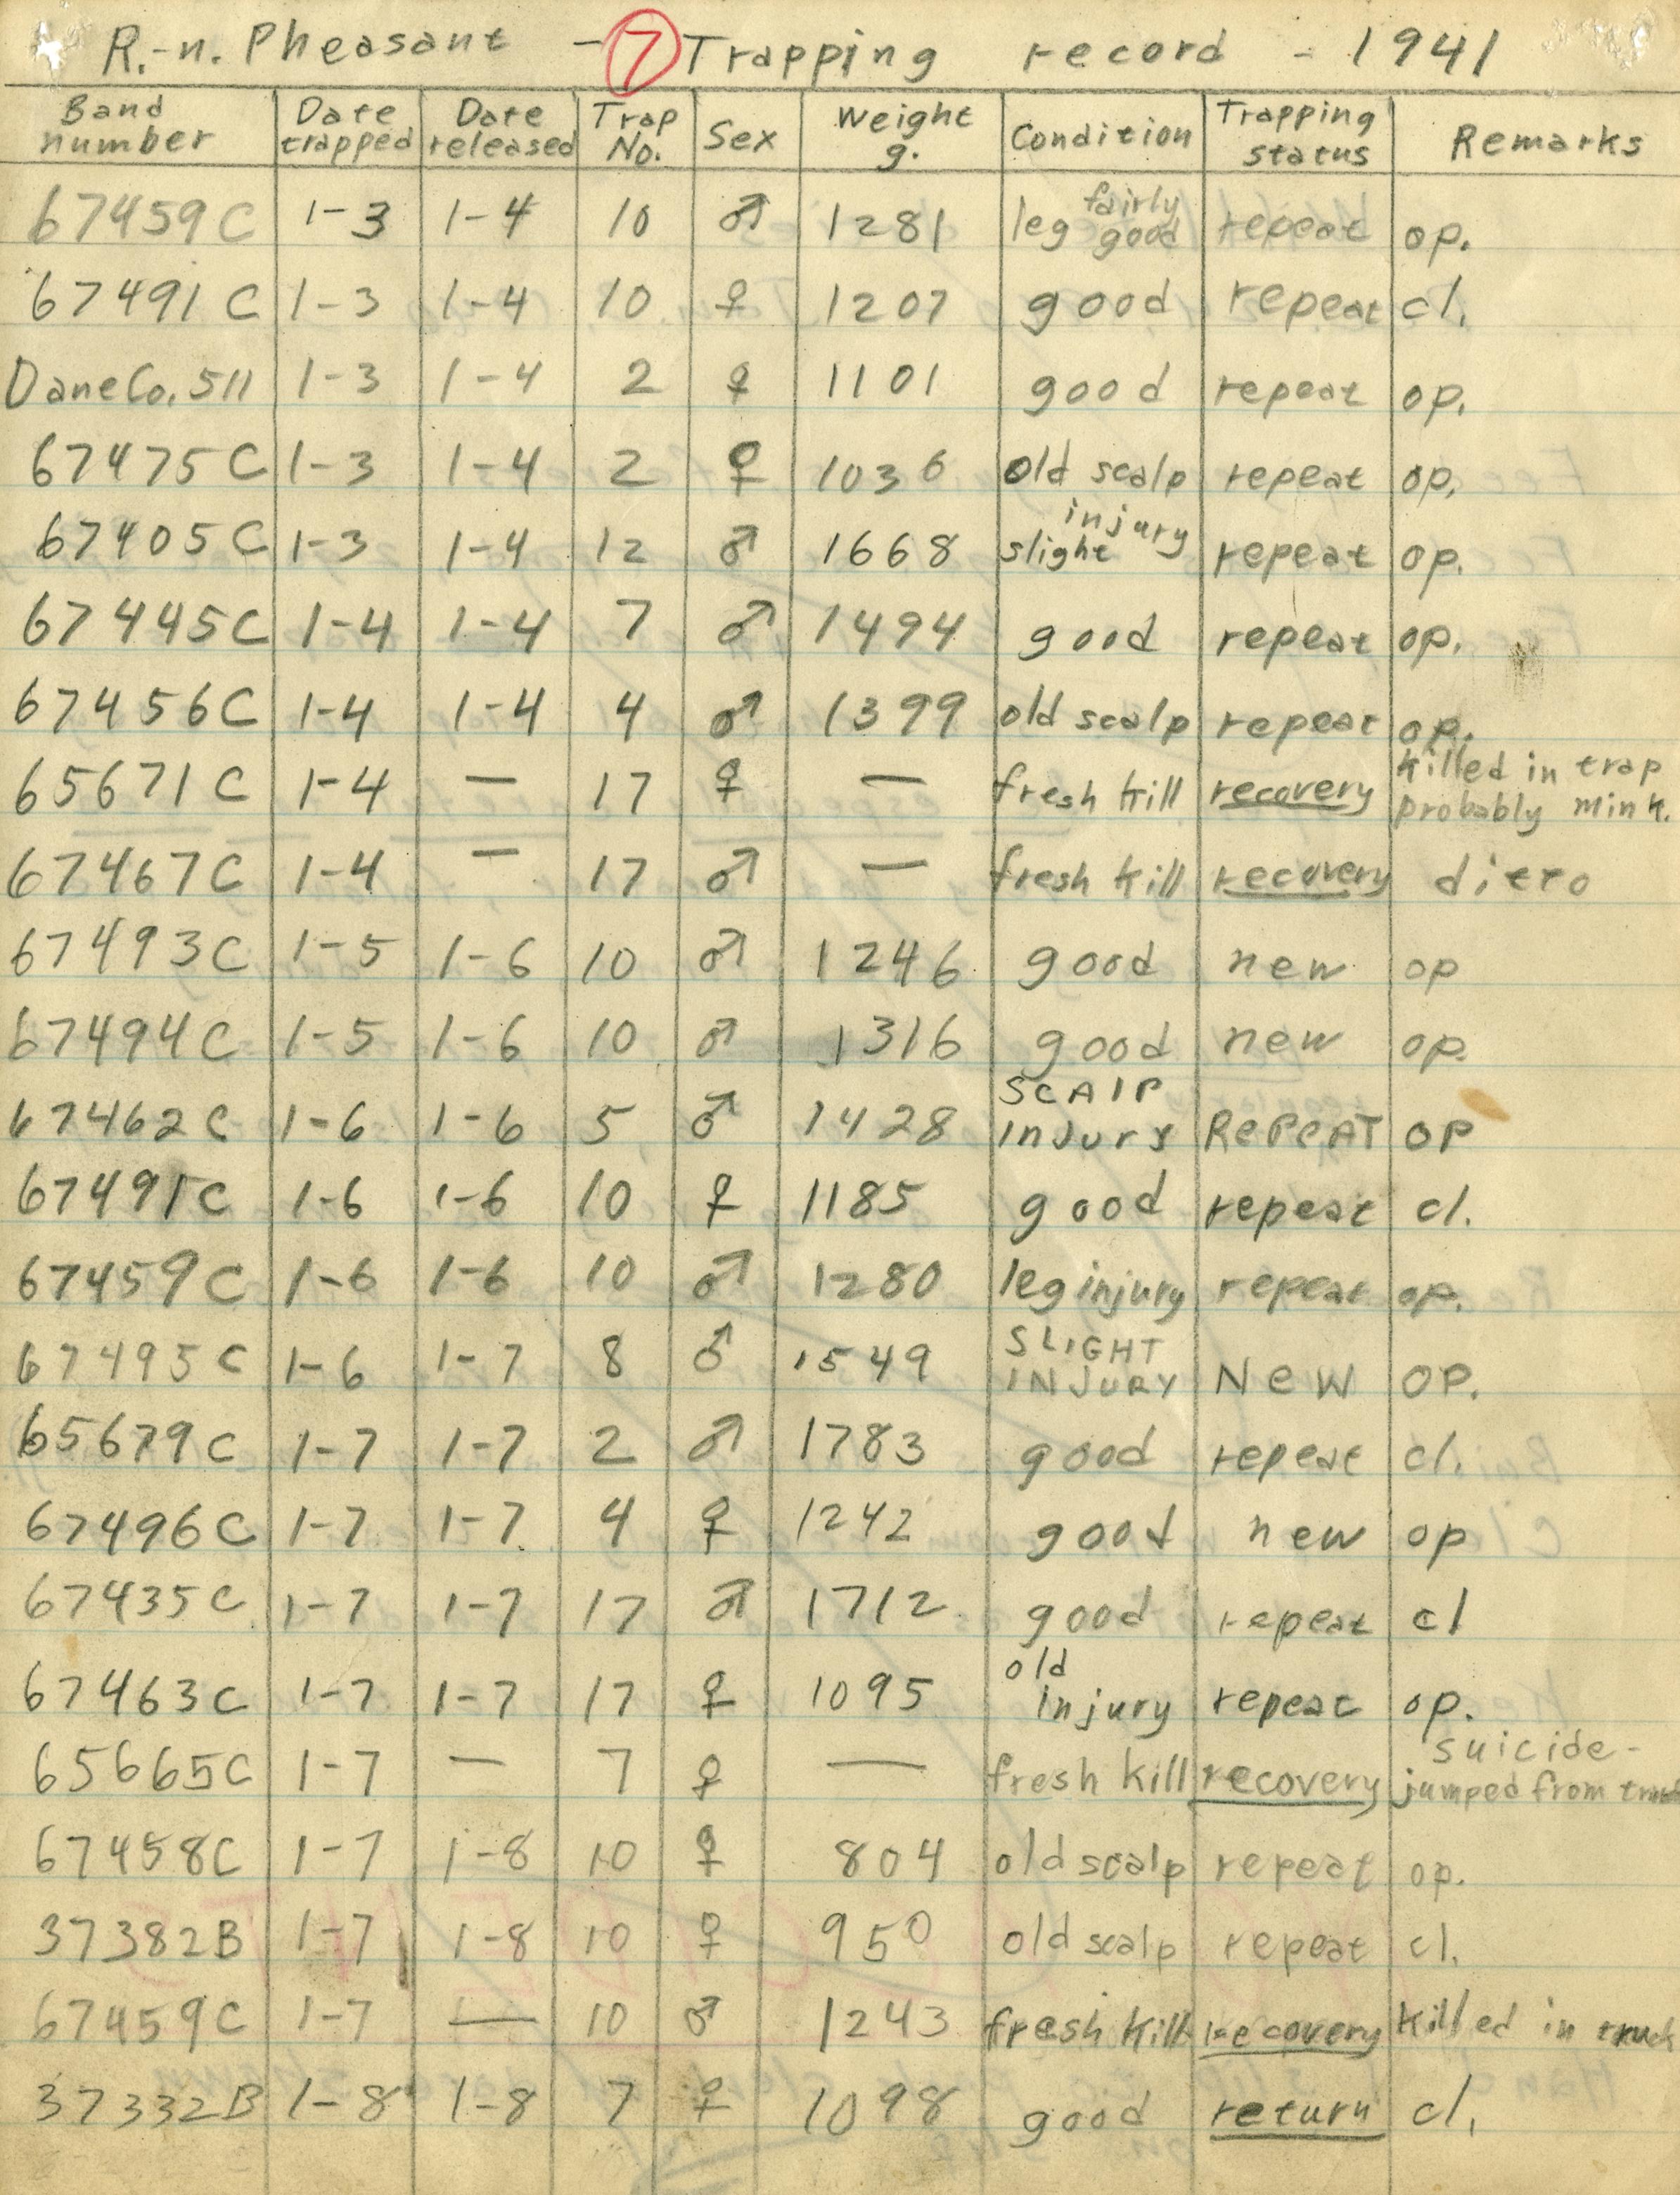 R.-n. Pheasant - 7 Trapping record - 1941
Band number Date trapped Date released Trap No. Sex Weight g. Condition Trapping status Remarks
67459C 1-3 1-4 10 ♂ 1281 leg fairly good repeat op.
67491C 1-3 1-4 10 ♀ 1207 good repeat cl.
Dane Co. 511 1-3 1-4 2 ♀ 1101 good repeat op.
67475C 1-3 1-4 2 ♀ 1036 old scalp repeat op.
67405C 1-3 1-4 12 ♂ 1668 slight injury repeat op.
67445C 1-4 1-4 7 ♂ 1494 good repeat op.
67456C 1-4 1-4 4 ♂ 1399 old scalp repeat op.
65671C 1-4 — 17 ♀ — fresh kill recovery killed in trap probably mink.
67467C 1-4 — 17 ♂ — fresh kill recovery ditto
67493C 1-5 1-6 10 ♂ 1246 good new op
67494C 1-5 1-6 10 ♂ 1316 good new op.
67462C 1-6 1-6 5 ♂ 1428 SCAlP InJury RePeAT OP
67491C 1-6 1-6 10 ♀ 1185 good repeat cl.
67459C 1-6 1-6 10 ♂ 1280 leg injury repeat op.
67495C 1-6 1-7 8 ♂ 1549 SLIGHT INJURY NeW OP.
65679C 1-7 1-7 2 ♂ 1783 good repeat cl.
67496C 1-7 1-7 4 ♀ 1242 good new op
67435C 1-7 1-7 17 ♂ 1712 good repeat cl
67463C 1-7 1-7 17 ♀ 1095 old injury repeat op.
65665C 1-7 — 7 ♀ — fresh kill recovery suicide - jumped from truck
67458C 1-7 1-8 10 ♀ 804 old scalp repeat op.
37382B 1-7 1-8 10 ♀ 950 old scalp repeat cl.
67459C 1-7 — 10 ♂ 1243 fresh kill recovery killed in truck
37332B 1-8 1-8 7 ♀ 1098 good return cl.